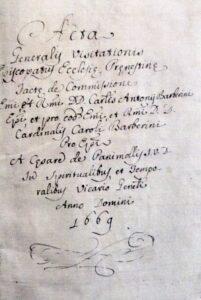 Acta
Generalis Visitationis
Episcopatus Ecclesię Pręnestinę
factę de Commissione
Emi. et Rmi. DD. Carlis Antonij Barberini
Epi et pro eod. Emi, et Rmi. D. D.
Cardinalis Caroli Barberini
Pro Epi
A Cęsare de Panimollis I.V.D.
In Spiritualibus et Tempo-
ralibus Vicario Genēli
Anno Domini
1669